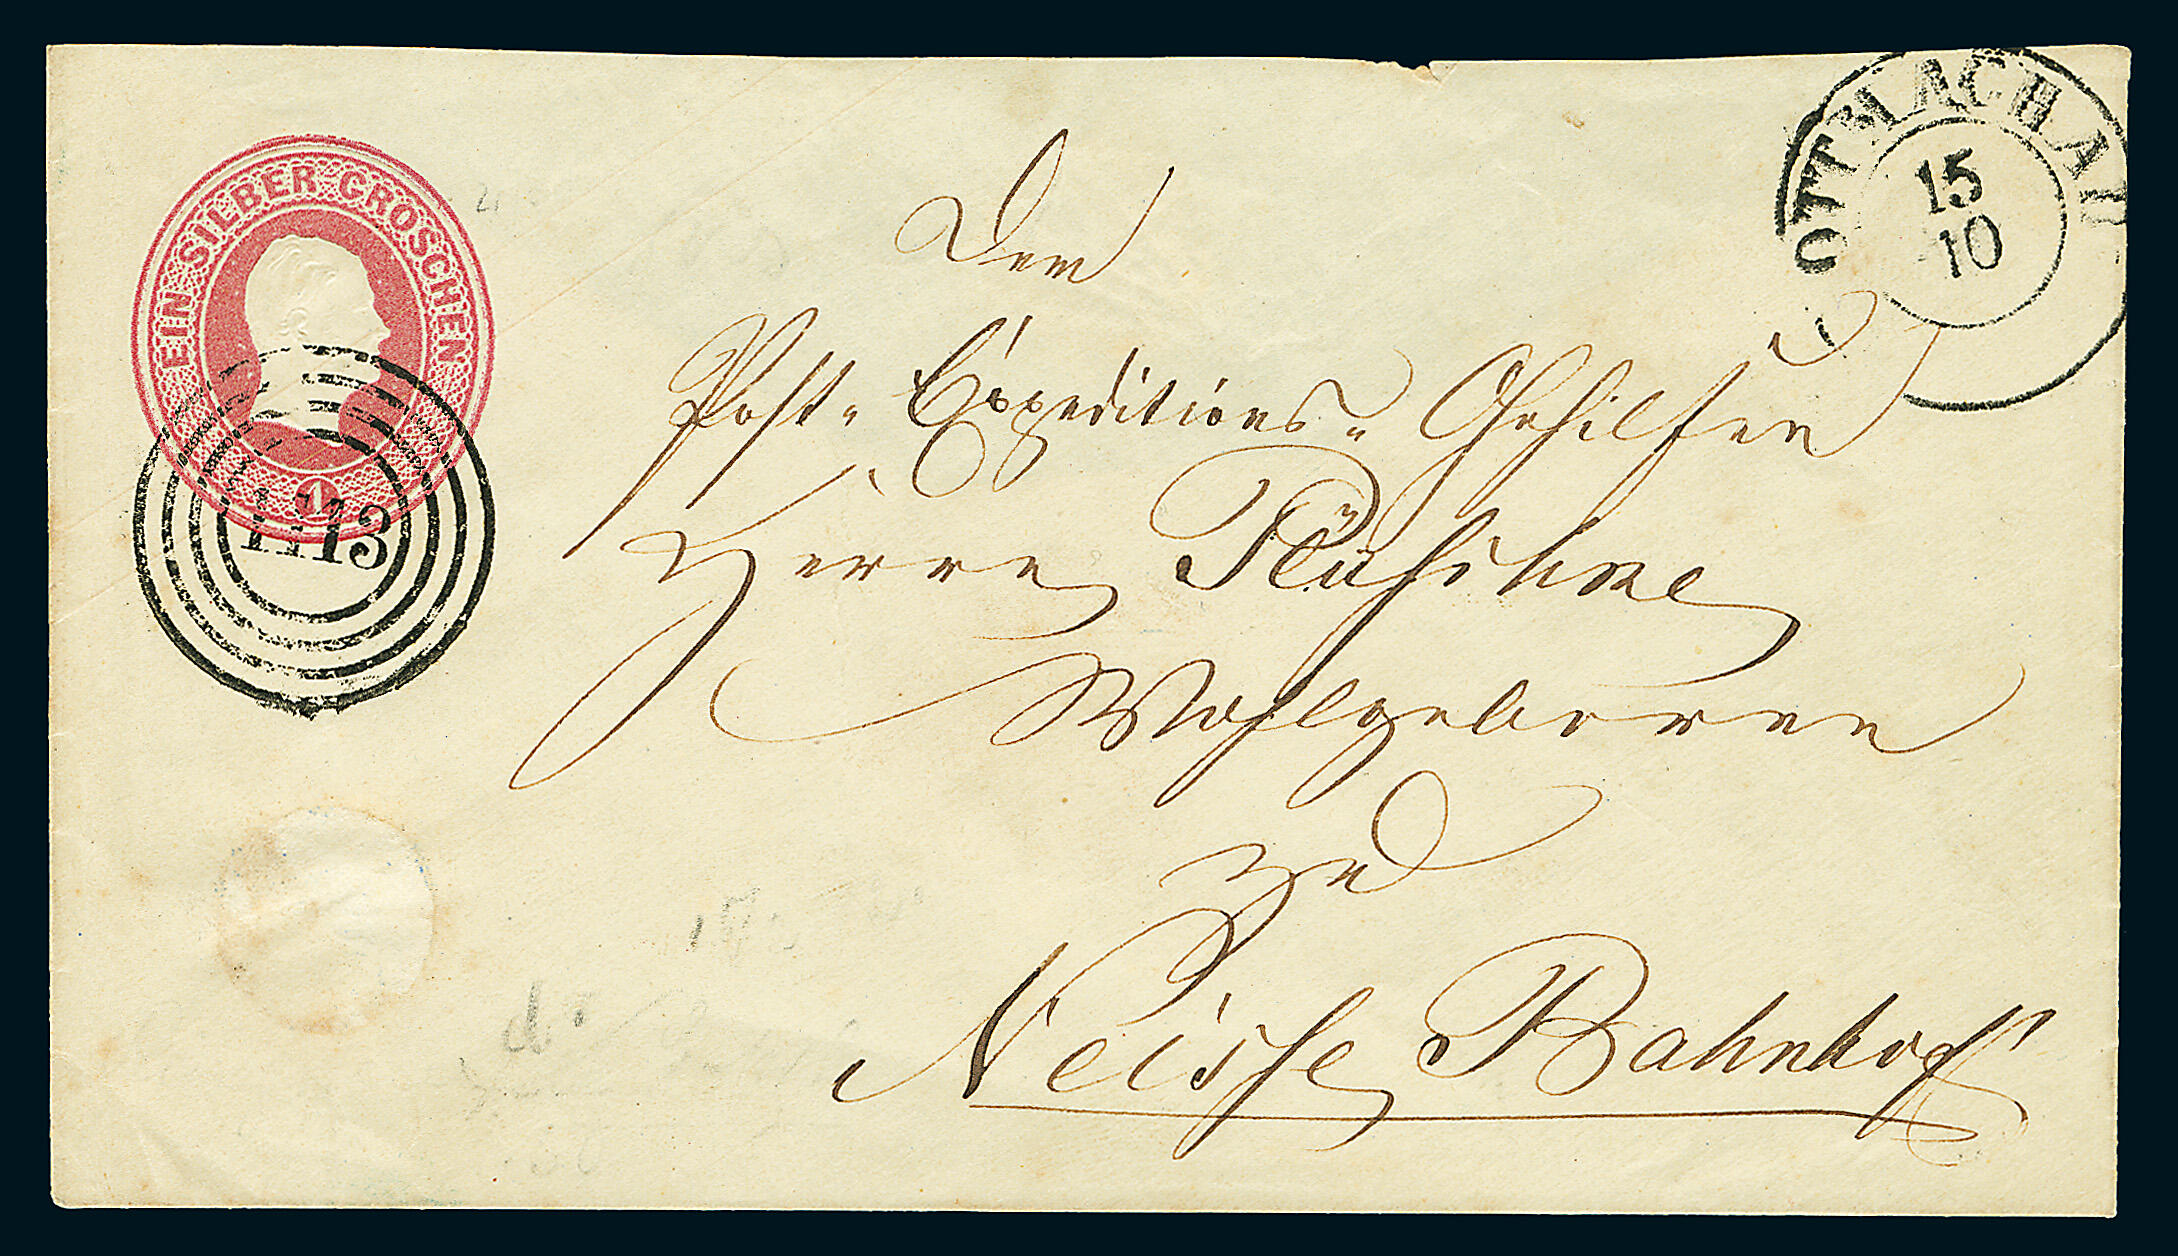 EIN SILBER GROSCHEN
1
1113
OTTMACHAU
15
10
Dem
Post- Expeditions- Gehilfen
Herrn
Wohlgeboren
zu
Neisse Bahnhof